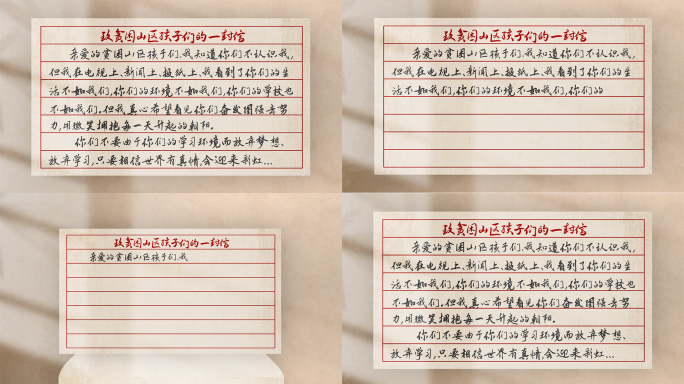 致贫困山区孩子们的一封信
亲爱的贫困山区孩子们，我知道你们不认识我，
但我在电视上、新闻上、报纸上、我看到了你们的生
活不如我们，你们的环境不如我们，你们的学校也
不如我们。但我真心希望看见你们奋发图强去努
力，用微笑拥抱每一天升起的朝阳。
你们不要由于你们的学习环境而放弃梦想、
放弃学习，只要相信世界有真情，会迎来彩虹...
致贫困山区孩子们的一封信
亲爱的贫困山区孩子们，我知道你们不认识我，
但我在电视上、新闻上、报纸上、我看到了你们的生
活不如我们，你们的环境不如我们，你们的
致贫困山区孩子们的一封信
亲爱的贫困山区孩子们，我
致贫困山区孩子们的一封信
亲爱的贫困山区孩子们，我知道你们不认识我，
但我在电视上、新闻上、报纸上、我看到了你们的生
活不如我们，你们的环境不如我们，你们的学校也
不如我们。但我真心希望看见你们奋发图强去努
力，用微笑拥抱每一天升起的朝阳。
你们不要由于你们的学习环境而放弃梦想、
放弃学习，只要相信世界有真情，会迎来彩虹...